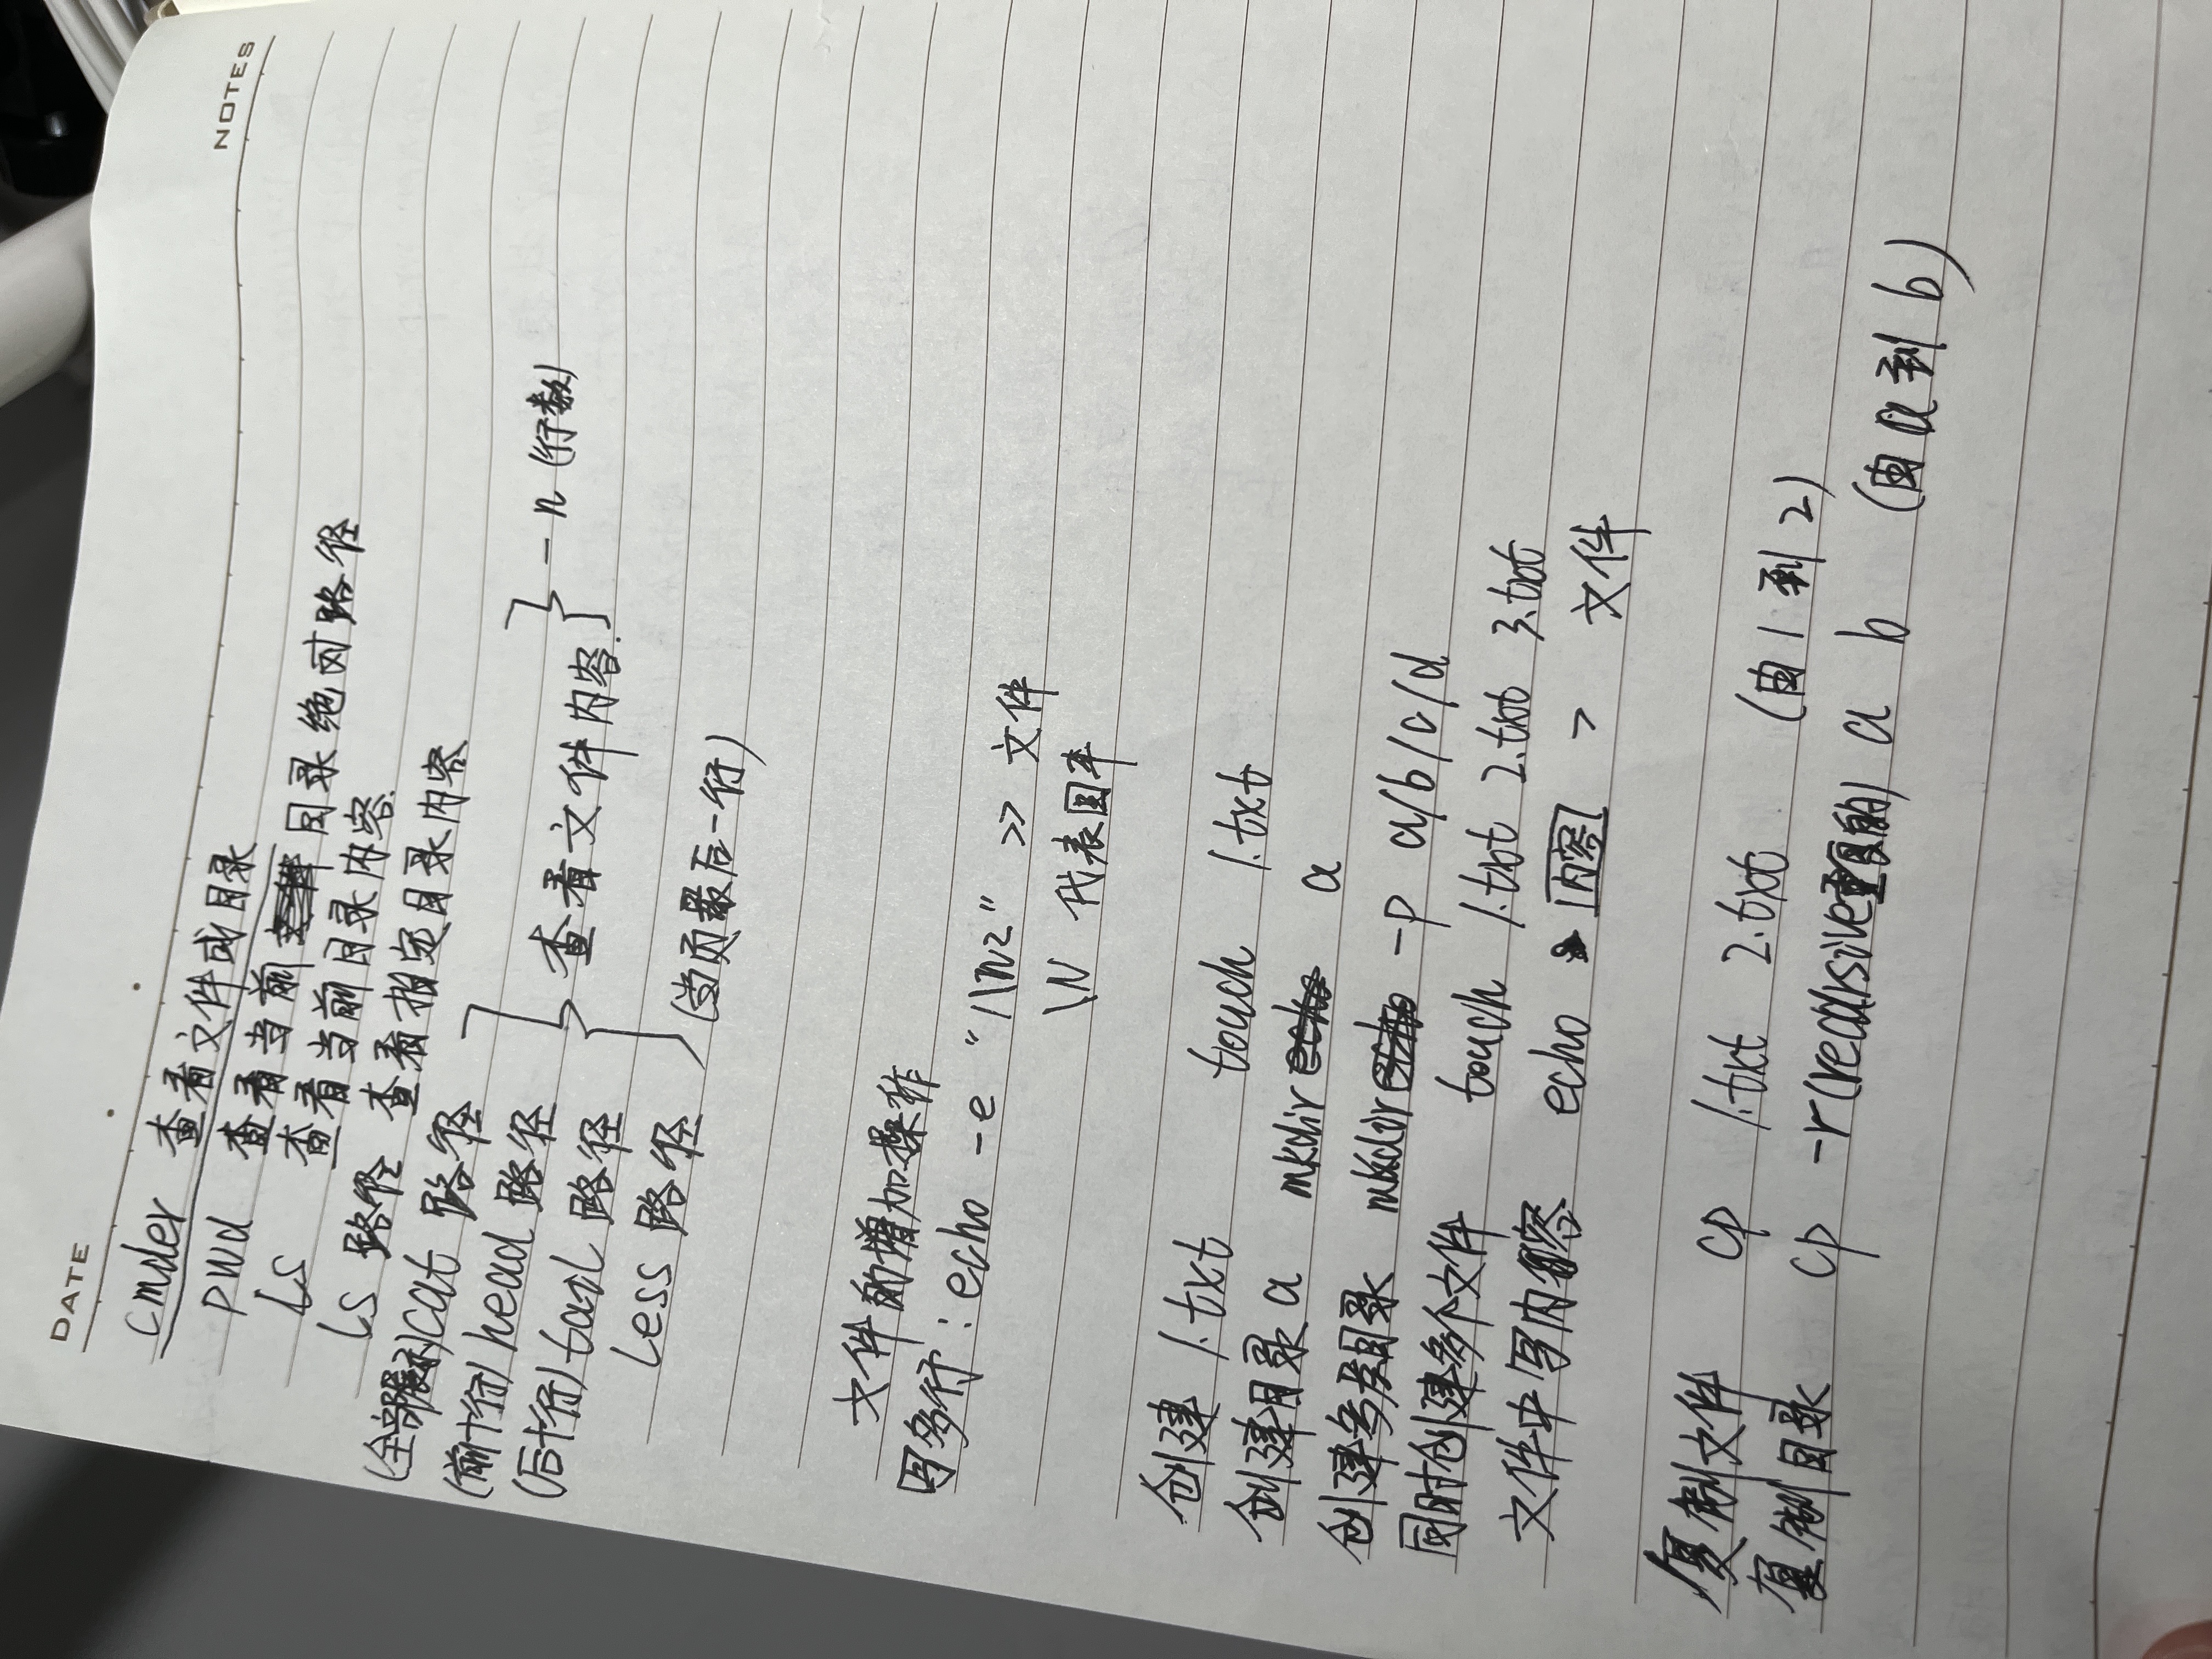 DATE
NOTES
cmder 查看文件或目录
pwd 查看当前目录绝对路径
ls 查看当前目录内容.
ls 路径 查看指定目录内容
(全部展示) cat 路径
(前十行) head 路径
(后十行) tail 路径
less 路径
查看文件内容.
-n (行数)
(当页最后一行)
文件的增加操作
写多行: echo -e "1\n2" >> 文件
\N 代表回车
创建 1.txt touch 1.txt
创建目录 a mkdir a
创建多层目录 mkdir -p a/b/c/d
同时创建多个文件 touch 1.txt 2.txt 3.txt
文件中写内容 echo 内容 > 文件
复制文件 cp 1.txt 2.txt (由1到2)
复制目录 cp -r (recursive重复的) a b (由a到b)